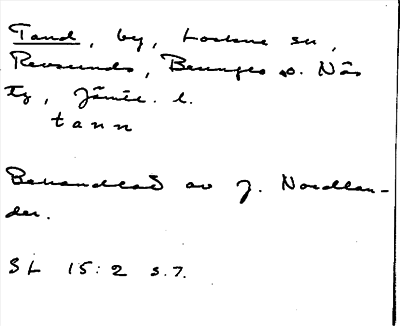 Tand, by, Lockne sn,
Revsunds, Brunflo o. Näs
tg, Jämtl. l.
tann
Behandlad av J. Nordlan-
der.
SL 15:2 s.7.